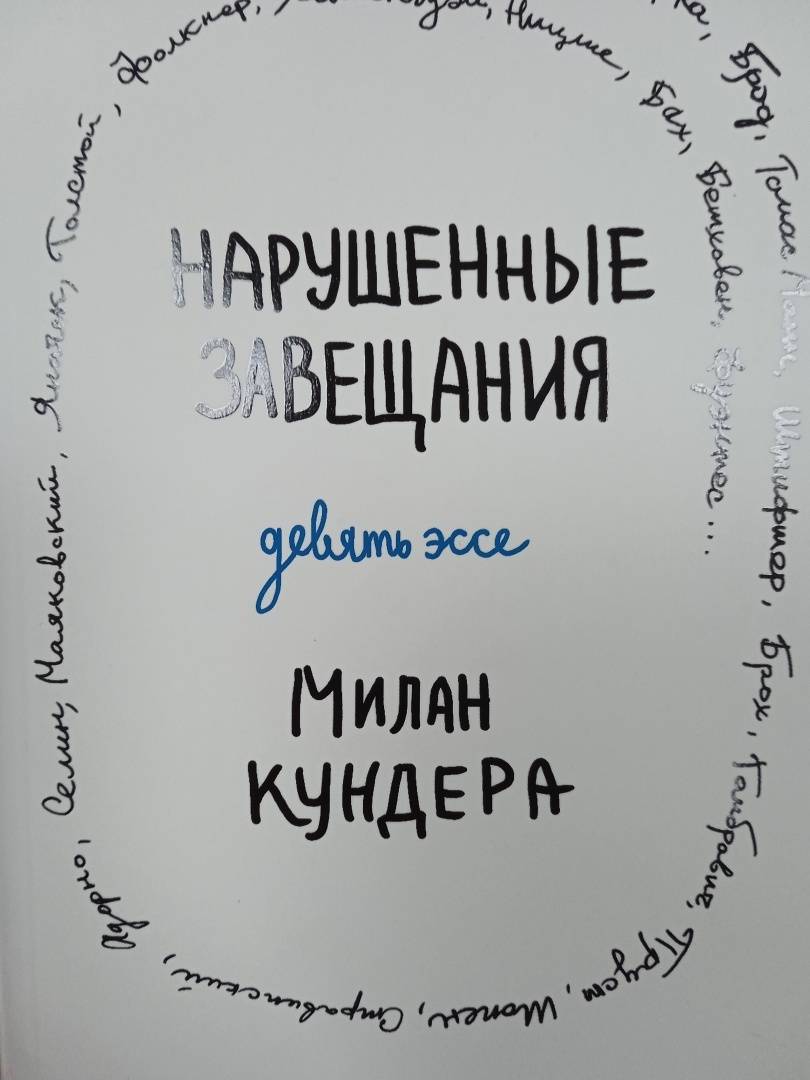 НАРУШЕННЫЕ
ЗАВЕЩАНИЯ
девять эссе
МИЛАН
КУНДЕРА
Брод, Томас Манн, Штифтер, Брох, Гомбрович, Пруст, Шопен, Стравинский, Адорно, Селин, Маяковский, Яначек, Толстой, Фолкнер,
Ницше, Бах, Бетховен, Фуэнтес...